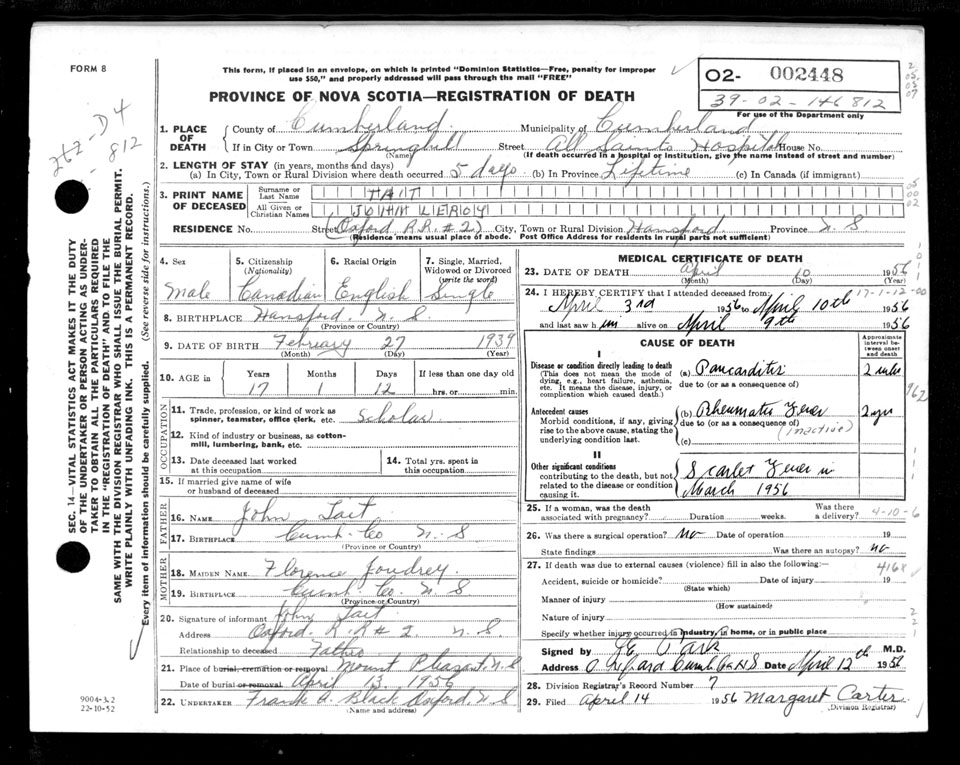 FORM 8
This form, if placed in an envelope, on which is printed "Dominion Statistics—Free, penalty for improper
use $50," and properly addressed will pass through the mail "FREE"
PROVINCE OF NOVA SCOTIA—REGISTRATION OF DEATH
02- 002448
39-02-146812
For use of the Department only
2
05
05
07
D 4
812
1. PLACE OF DEATH
County of Cumberland Municipality of Cumberland
If in City or Town Springhill Street All Saints Hospital House No.
(Name) (If death occurred in a hospital or institution, give the name instead of street and number)
2. LENGTH OF STAY (in years, months and days)
(a) In City, Town or Rural Division where death occurred 5 days (b) In Province Lifetime (c) In Canada (if immigrant)
3. PRINT NAME OF DECEASED
Surname or Last Name TAIT
All Given or Christian Names JOHN LEROY
05
00
02
RESIDENCE No. Street (Oxford R.R. # 2) City, Town or Rural Division Hansford Province N S
(Residence means usual place of abode. Post Office Address for residents in rural parts not sufficient)
4. Sex Male
5. Citizenship (Nationality) Canadian
6. Racial Origin English
7. Single, Married, Widowed or Divorced (write the word) Single
8. BIRTHPLACE Hansford, N S
(Province or Country)
9. DATE OF BIRTH February 27 1939
(Month) (Day) (Year)
10. AGE in Years Months Days If less than one day old
17 1 12 hrs. or min.
OCCUPATION
11. Trade, profession, or kind of work as spinner, teamster, office clerk, etc. Scholar
12. Kind of industry or business, as cotton-mill, lumbering, bank, etc.
13. Date deceased last worked at this occupation
14. Total yrs. spent in this occupation
15. If married give name of wife or husband of deceased
FATHER
16. NAME John Tait
17. BIRTHPLACE Cumb. Co N. S
(Province or Country)
MOTHER
18. MAIDEN NAME Florence Joudrey
19. BIRTHPLACE Cumb. Co. N. S
(Province or Country)
20. Signature of informant John Tait
Address Oxford. R.R # 2 N. S
Relationship to deceased Father
21. Place of burial, cremation or removal Mount Pleasant N S
Date of burial or removal April 13, 1956
22. UNDERTAKER Frank A. Black Oxford, N. S
(Name and address)
MEDICAL CERTIFICATE OF DEATH
23. DATE OF DEATH April 10 1956
(Month) (Day) (Year)
24. I HEREBY CERTIFY that I attended deceased from: 17-1-12-00
April 3rd 1956 to April 10th 1956
and last saw him alive on April 9th 1956
CAUSE OF DEATH
Approximate interval between onset and death
I
Disease or condition directly leading to death
(This does not mean the mode of dying, e.g., heart failure, asthenia, etc. It means the disease, injury, or complication which caused death.)
(a) Pancarditis 2 wks
due to (or as a consequence of)
962
Antecedent causes
Morbid conditions, if any, giving rise to the above cause, stating the underlying condition last.
(b) Rheumatic Fever 2 yrs
due to (or as a consequence of) (inactive)
(c)
II
Other significant conditions
contributing to the death, but not related to the disease or condition causing it.
Scarlet Fever in
March 1956
25. If a woman, was the death associated with pregnancy? Duration weeks. Was there a delivery? 4-10-6
26. Was there a surgical operation? no Date of operation 19
State findings Was there an autopsy? no
27. If death was due to external causes (violence) fill in also the following:— 416X
Accident, suicide or homicide? Date of injury 19
(State which)
Manner of injury
(How sustained)
Nature of injury
Specify whether injury occurred in industry, in home, or in public place
Signed by M.D.
Address Oxford Cumb Co N S Date April 12th 1956
28. Division Registrar's Record Number 7
29. Filed April 14 1956 Margaret Carter
(Division Registrar)
SEC. 14—VITAL STATISTICS ACT MAKES IT THE DUTY
OF THE UNDERTAKER OR PERSON ACTING AS UNDER-
TAKER TO OBTAIN ALL THE PARTICULARS REQUIRED
IN THE "REGISTRATION OF DEATH" AND TO FILE THE
SAME WITH THE DIVISION REGISTRAR WHO SHALL ISSUE THE BURIAL PERMIT.
WRITE PLAINLY WITH UNFADING INK. THIS IS A PERMANENT RECORD.
Every item of information should be carefully supplied. (See reverse side for instructions.)
9004-3.2
22-10-52